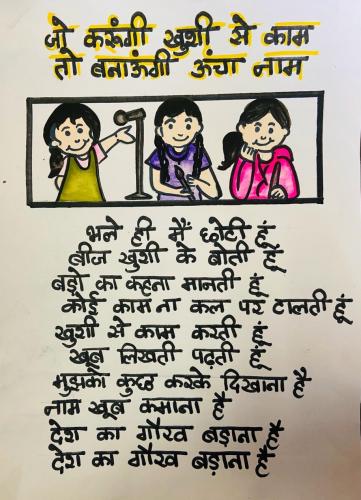 जो करूंगी खुशी से काम
तो बनाऊंगी ऊंचा नाम
भले ही मैं छोटी हूं
बीज खुशी के बोती हूं
बड़ो का कहना मानती हूं
कोई काम ना कल पर टालती हूं
खुशी से काम करती हूं
खूब लिखती पढ़ती हूं
मुझको कुछ करके दिखाना है
नाम खूब कमाना है
देश का गौरव बड़ाना है
देश का गौरव बड़ाना है